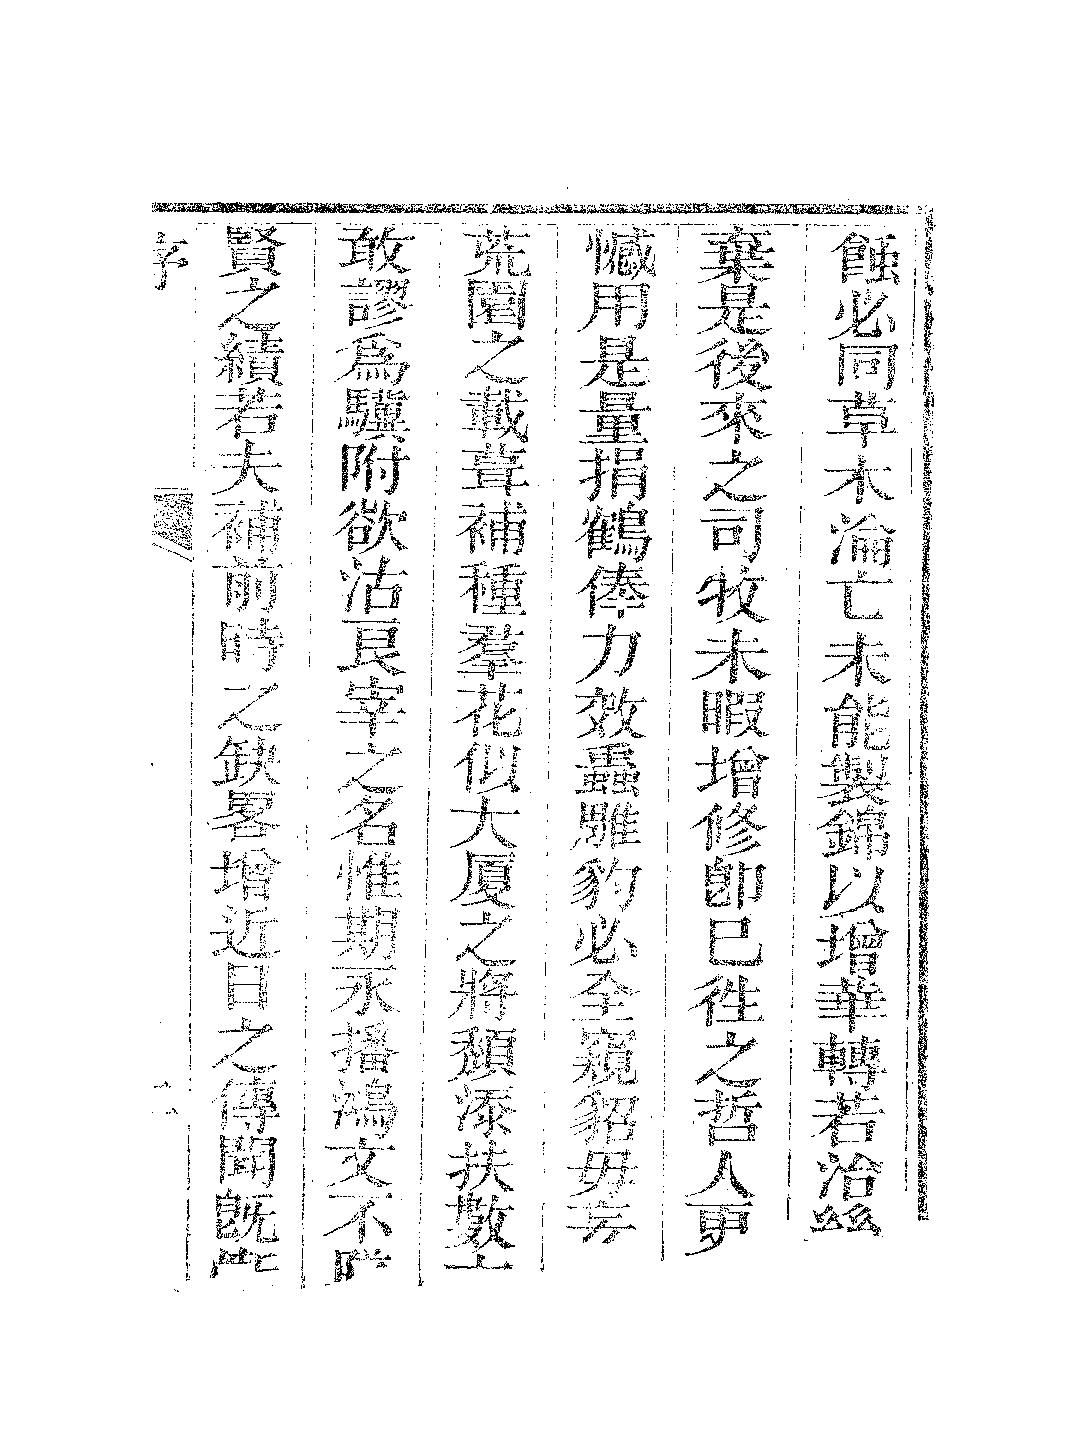 蝕必同草木淪亡未能製錦以增華轉若治絲
棄是後來之司牧未暇增修卽已徃之哲人更
憾用是量捐鶴俸力效蟲雕豹必全窺貂毋
荒園之載葺補種羣花似大厦之將頽添扶數
敢謬爲驥附欲沽良宰之名惟期永播鴻文不
賢之績若夫補前時之缺畧增近日之傳聞旣
序